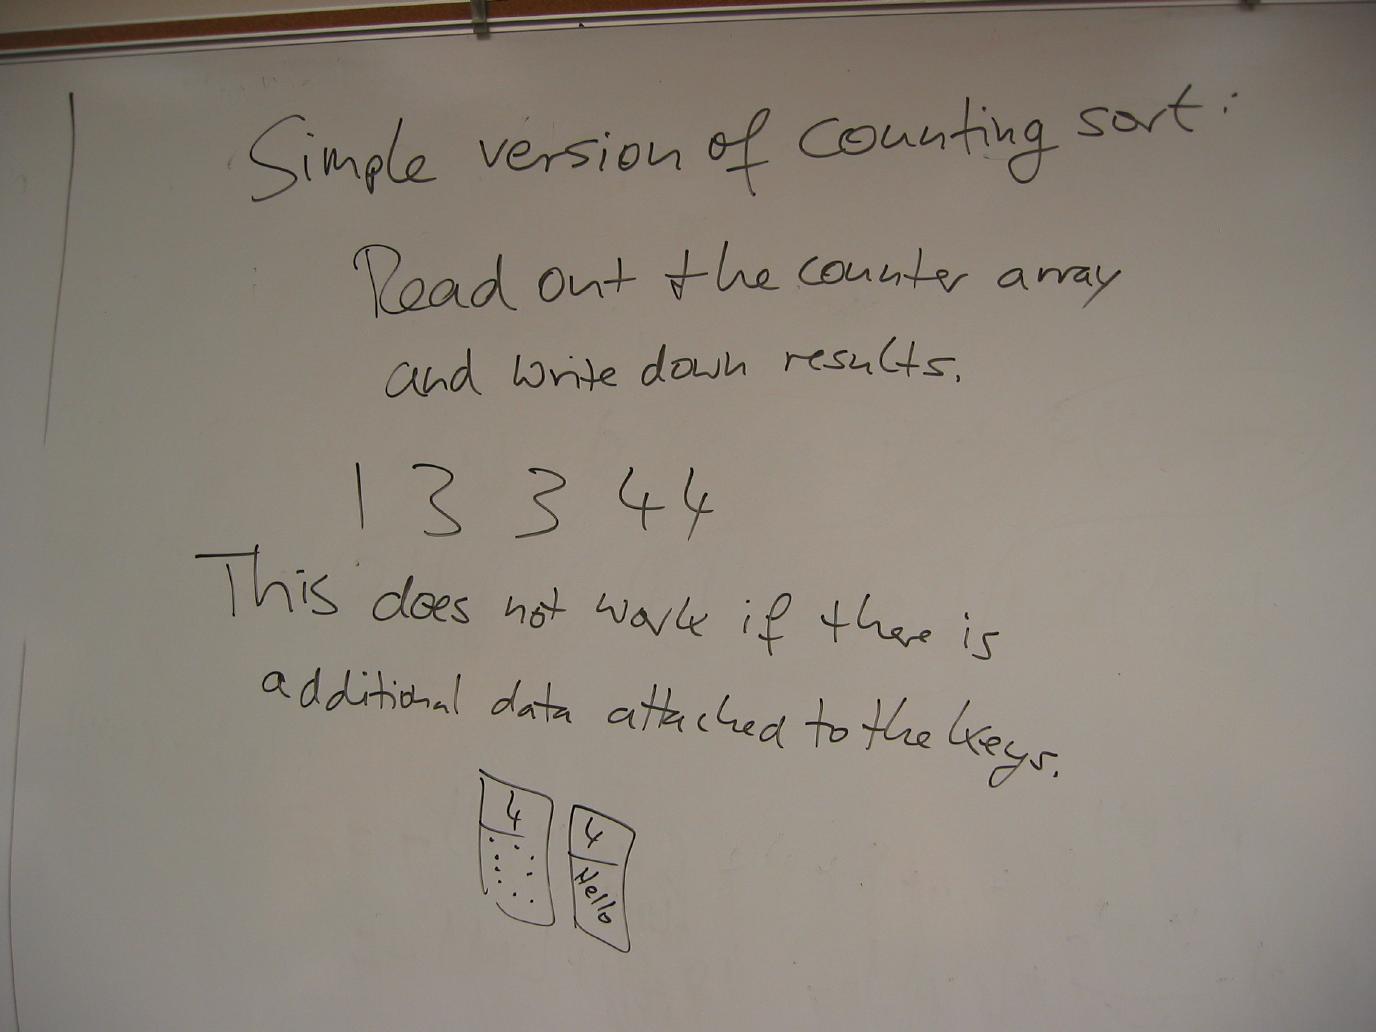 Simple version of counting sort:
Read out the counter array
and write down results.
1 3 3 4 4
This does not work if there is
additional data attached to the keys.
4 4
Hello